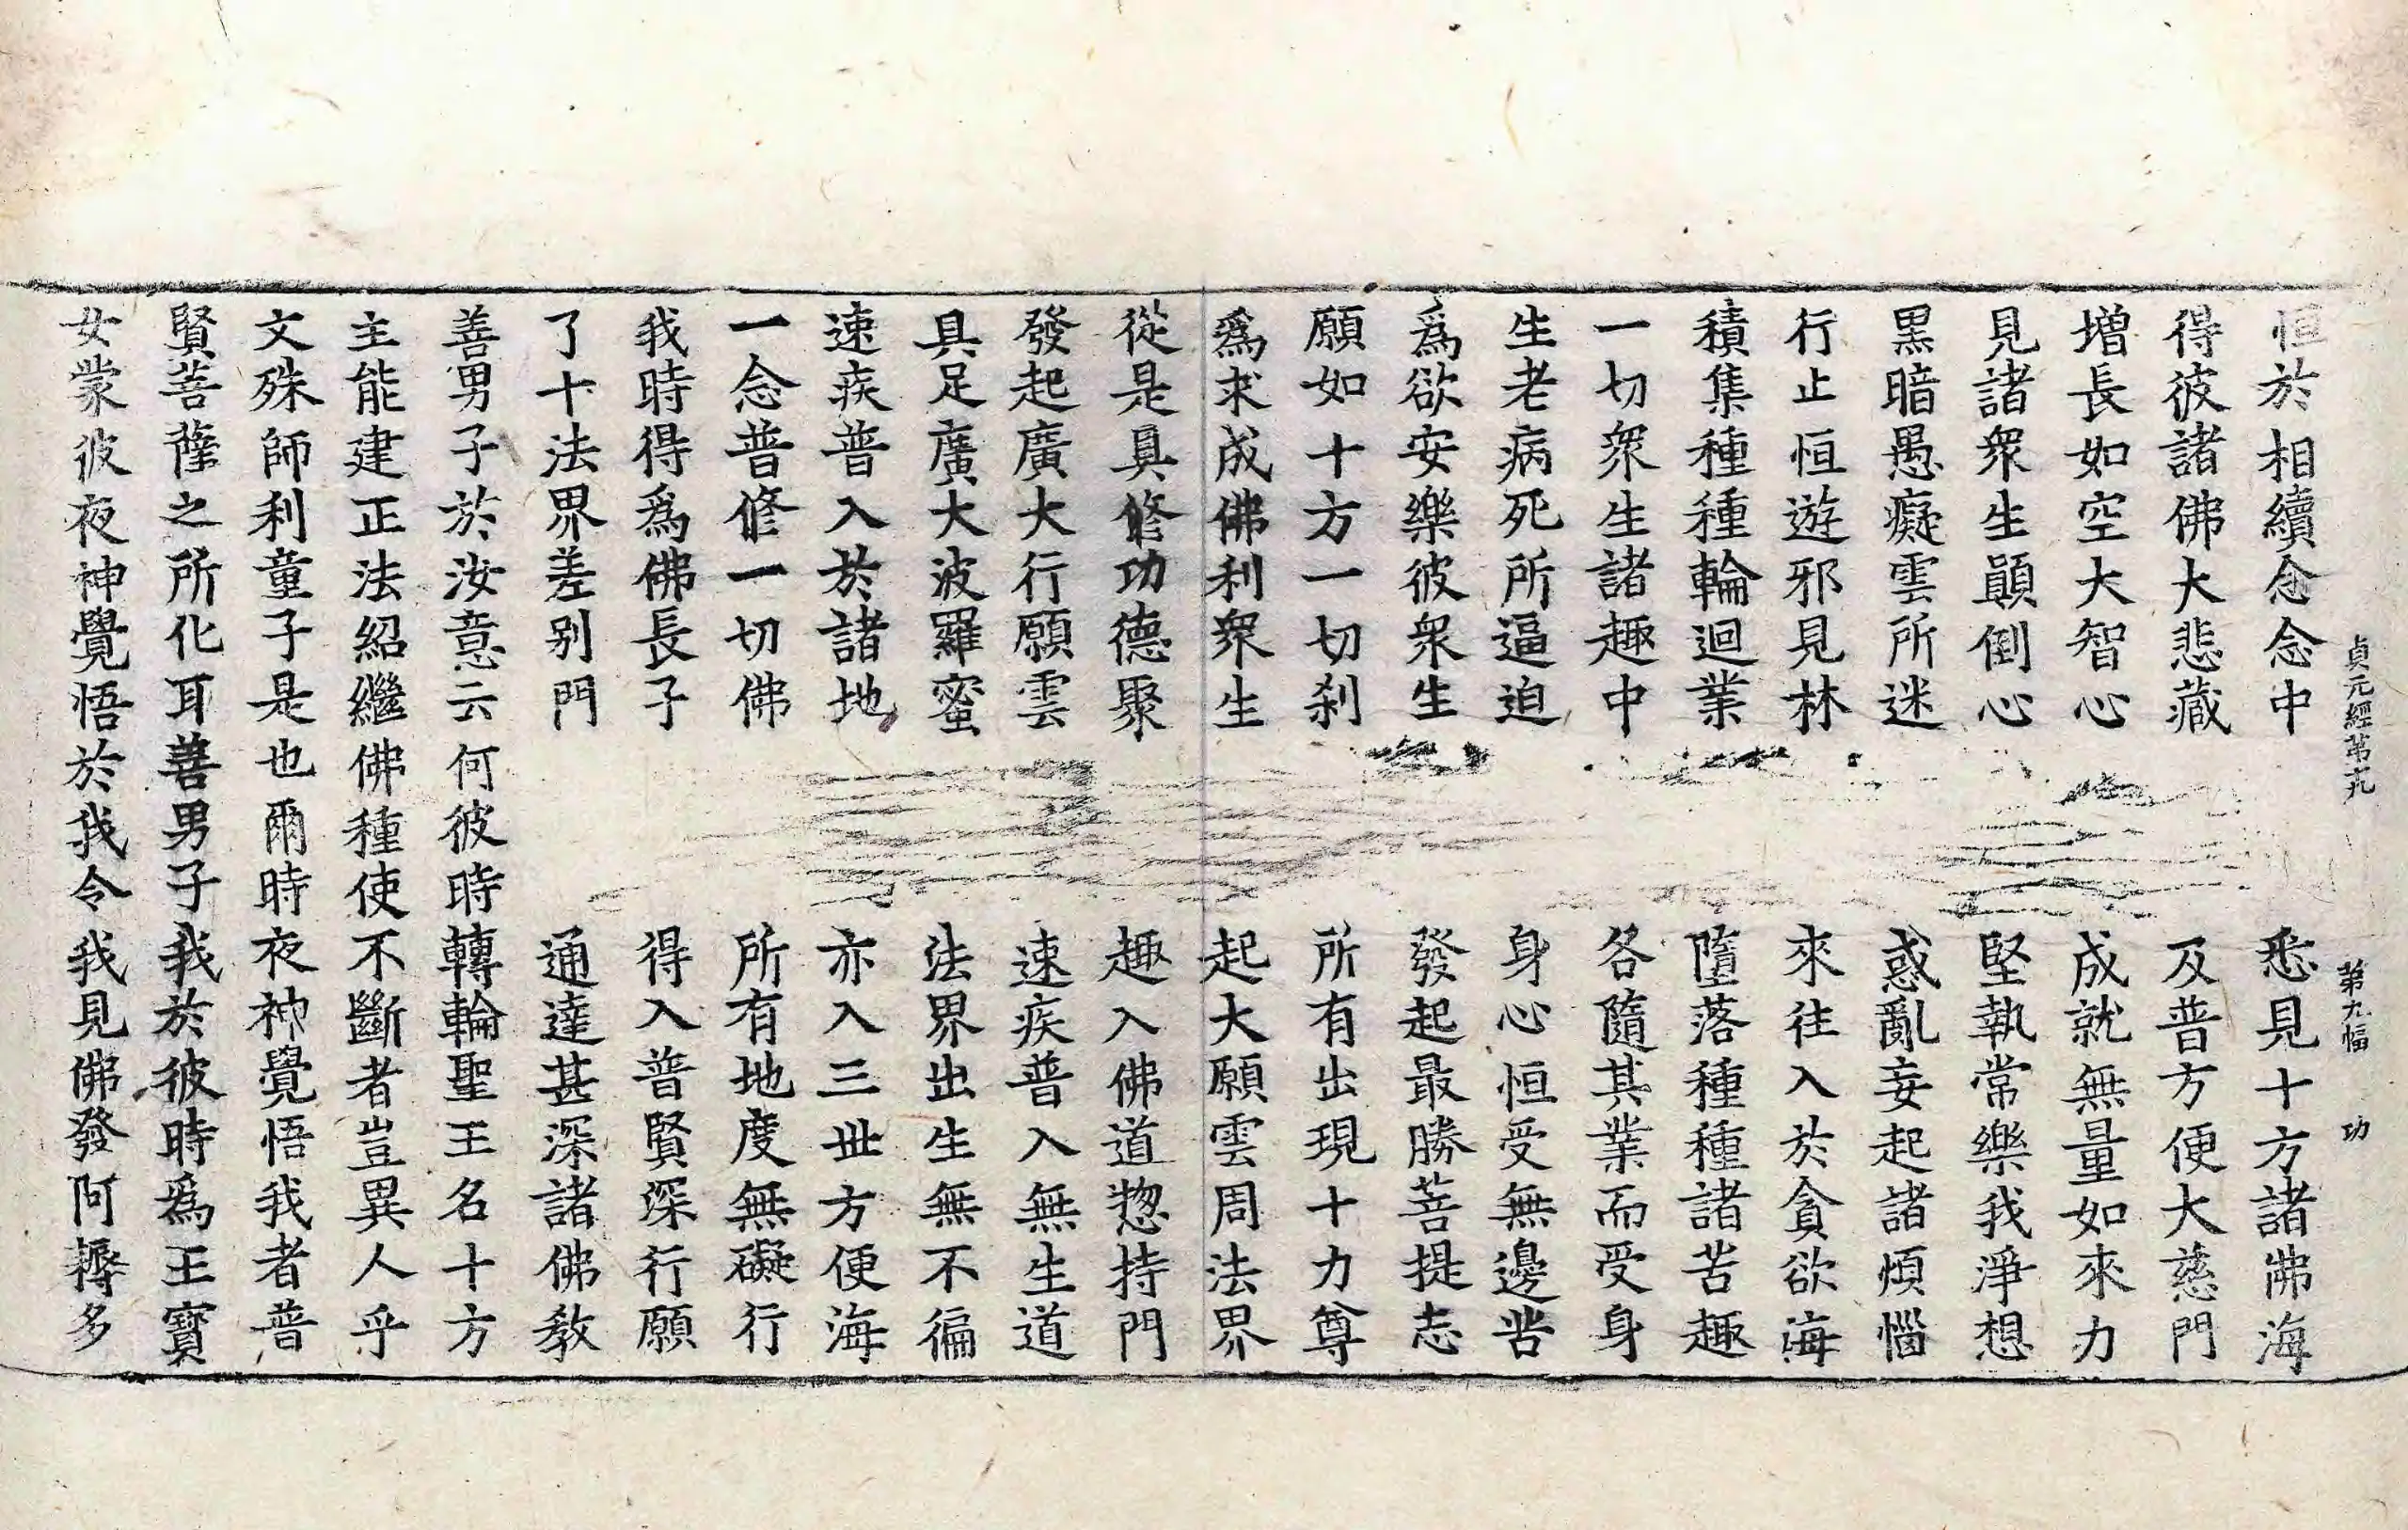 貞元經第十九 第九幅 功
恒於相續念念中 悉見十方諸佛海
得彼諸佛大悲藏 及普方便大慈門
增長如空大智心 成就無量如來力
見諸衆生顚倒心 堅執常樂我淨想
黑暗愚癡雲所迷 惑亂妄起諸煩惱
行止恒遊邪見林 來往入於貪欲海
積集種種輪迴業 墮落種種諸苦趣
一切衆生諸趣中 各隨其業而受身
生老病死所逼迫 身心恒受無邊苦
爲欲安樂彼衆生 發起最勝菩提志
願如十方一切刹 所有出現十力尊
爲求成佛利衆生 起大願雲周法界
從是具修功德聚 趣入佛道惣持門
發起廣大行願雲 速疾普入無生道
具足廣大波羅蜜 法界出生無不徧
速疾普入於諸地 亦入三世方便海
一念普修一切佛 所有地度無礙行
我時得爲佛長子 得入普賢深行願
了十法界差别門 通達甚深諸佛教
善男子於汝意云何彼時轉輪聖王名十方
主能建正法紹繼佛種使不斷者豈異人乎
文殊師利童子是也爾時夜神覺悟我者普
賢菩薩之所化耳善男子我於彼時爲王寶
女蒙彼夜神覺悟於我令我見佛發阿耨多